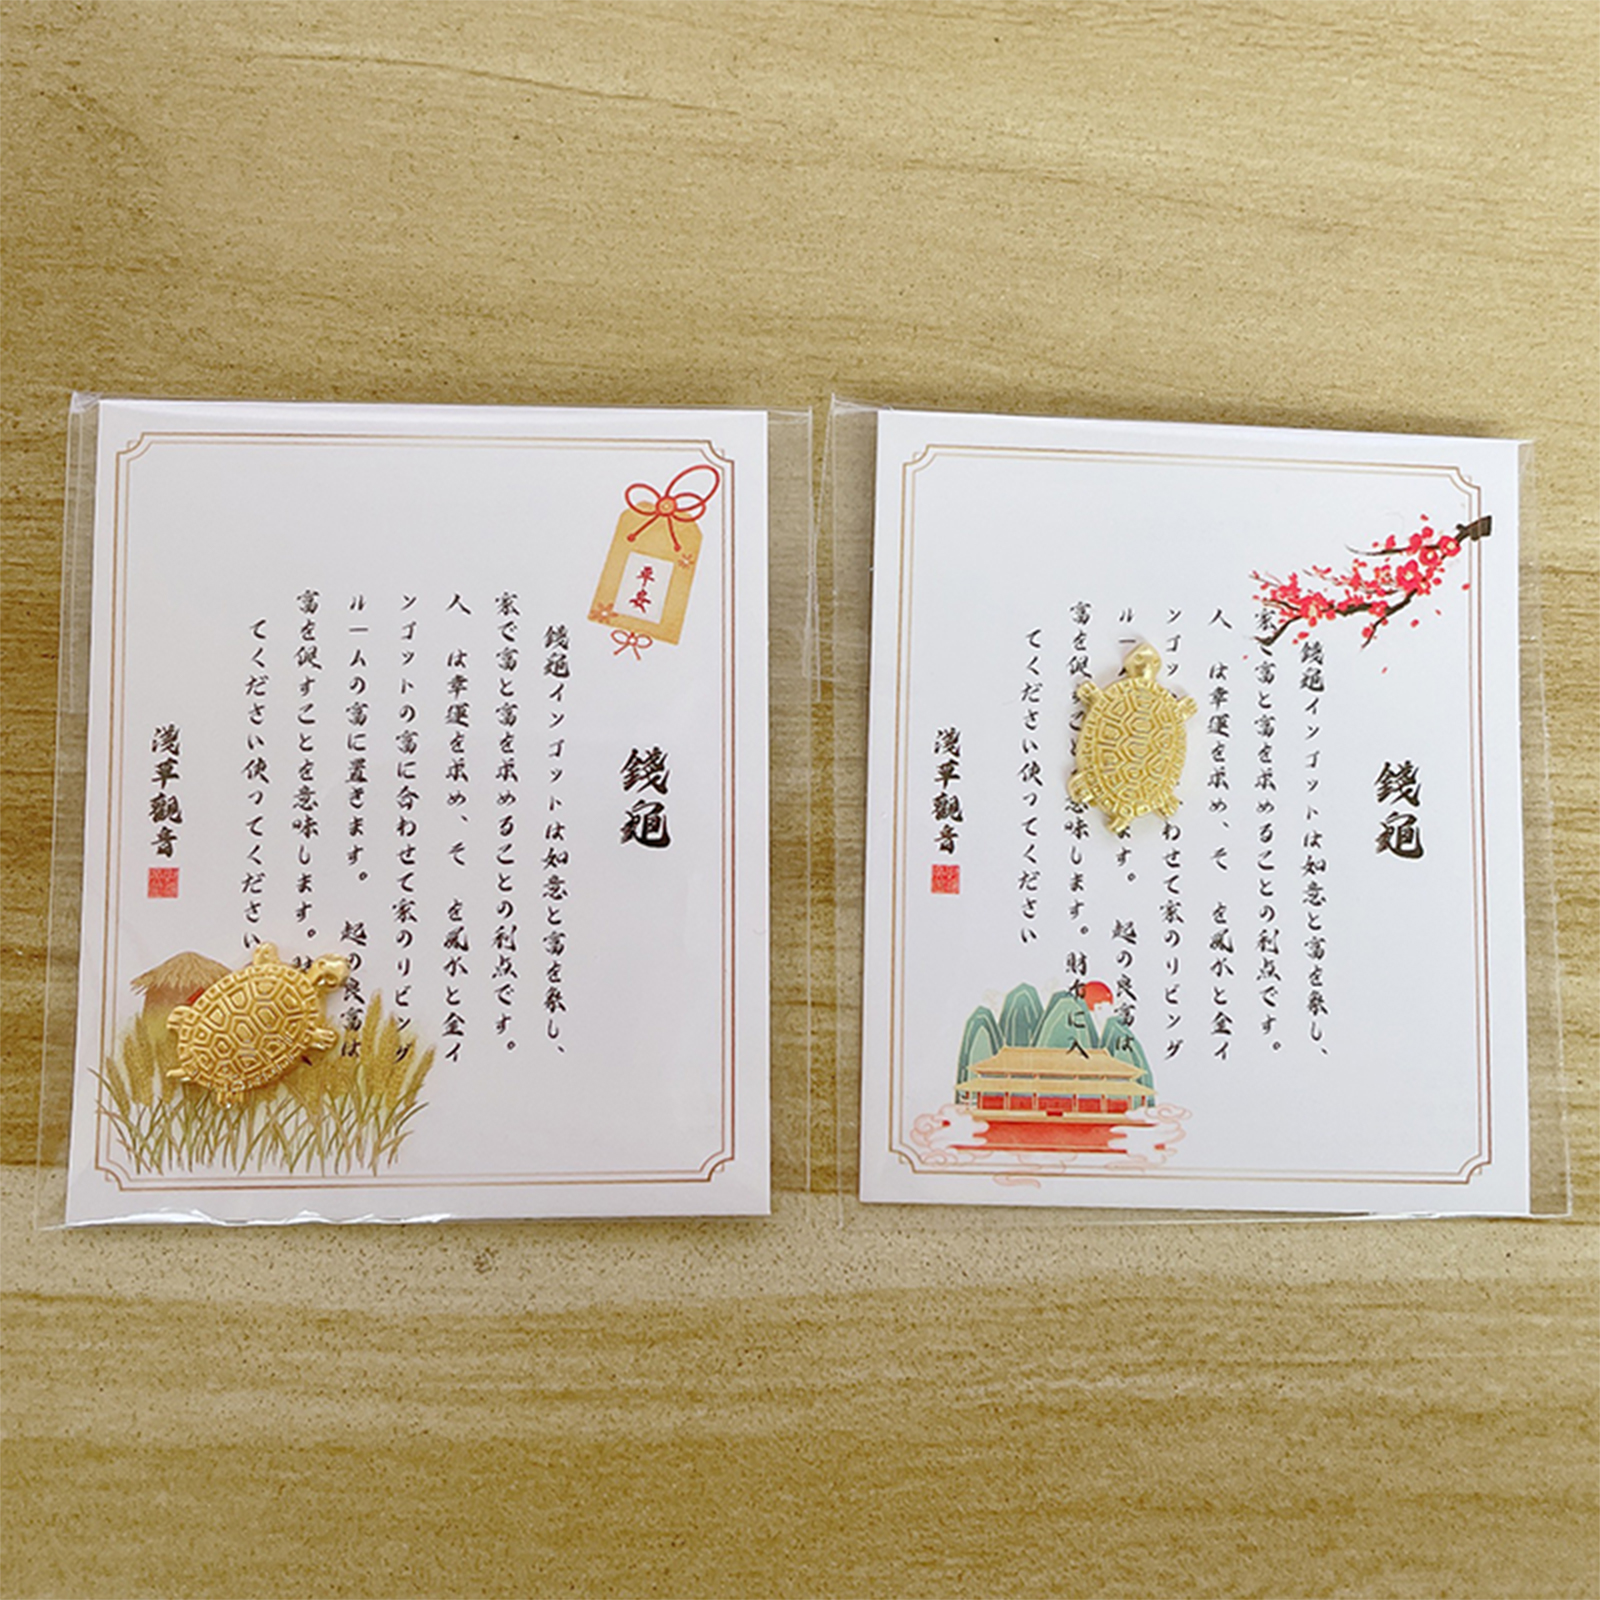 平安
錢龜
錢龜インゴットは如意と富を象し、
家で富と富を求めることの利点です。
人 は幸運を求め、そ を風水と金イ
ンゴットの富に合わせて家のリビング
ルームの富に置きます。 起の良富は
富を促すことを意味します。
てください使ってください
淺草觀音
錢龜
錢龜インゴットは如意と富を象し、
家で富と富を求めることの利点です。
人 は幸運を求め、そ を風水と金イ
ンゴッ わせて家のリビング
ルー ます。 起の良富は
富を促すこと 意味します。財布に入
てください使ってください
淺草觀音